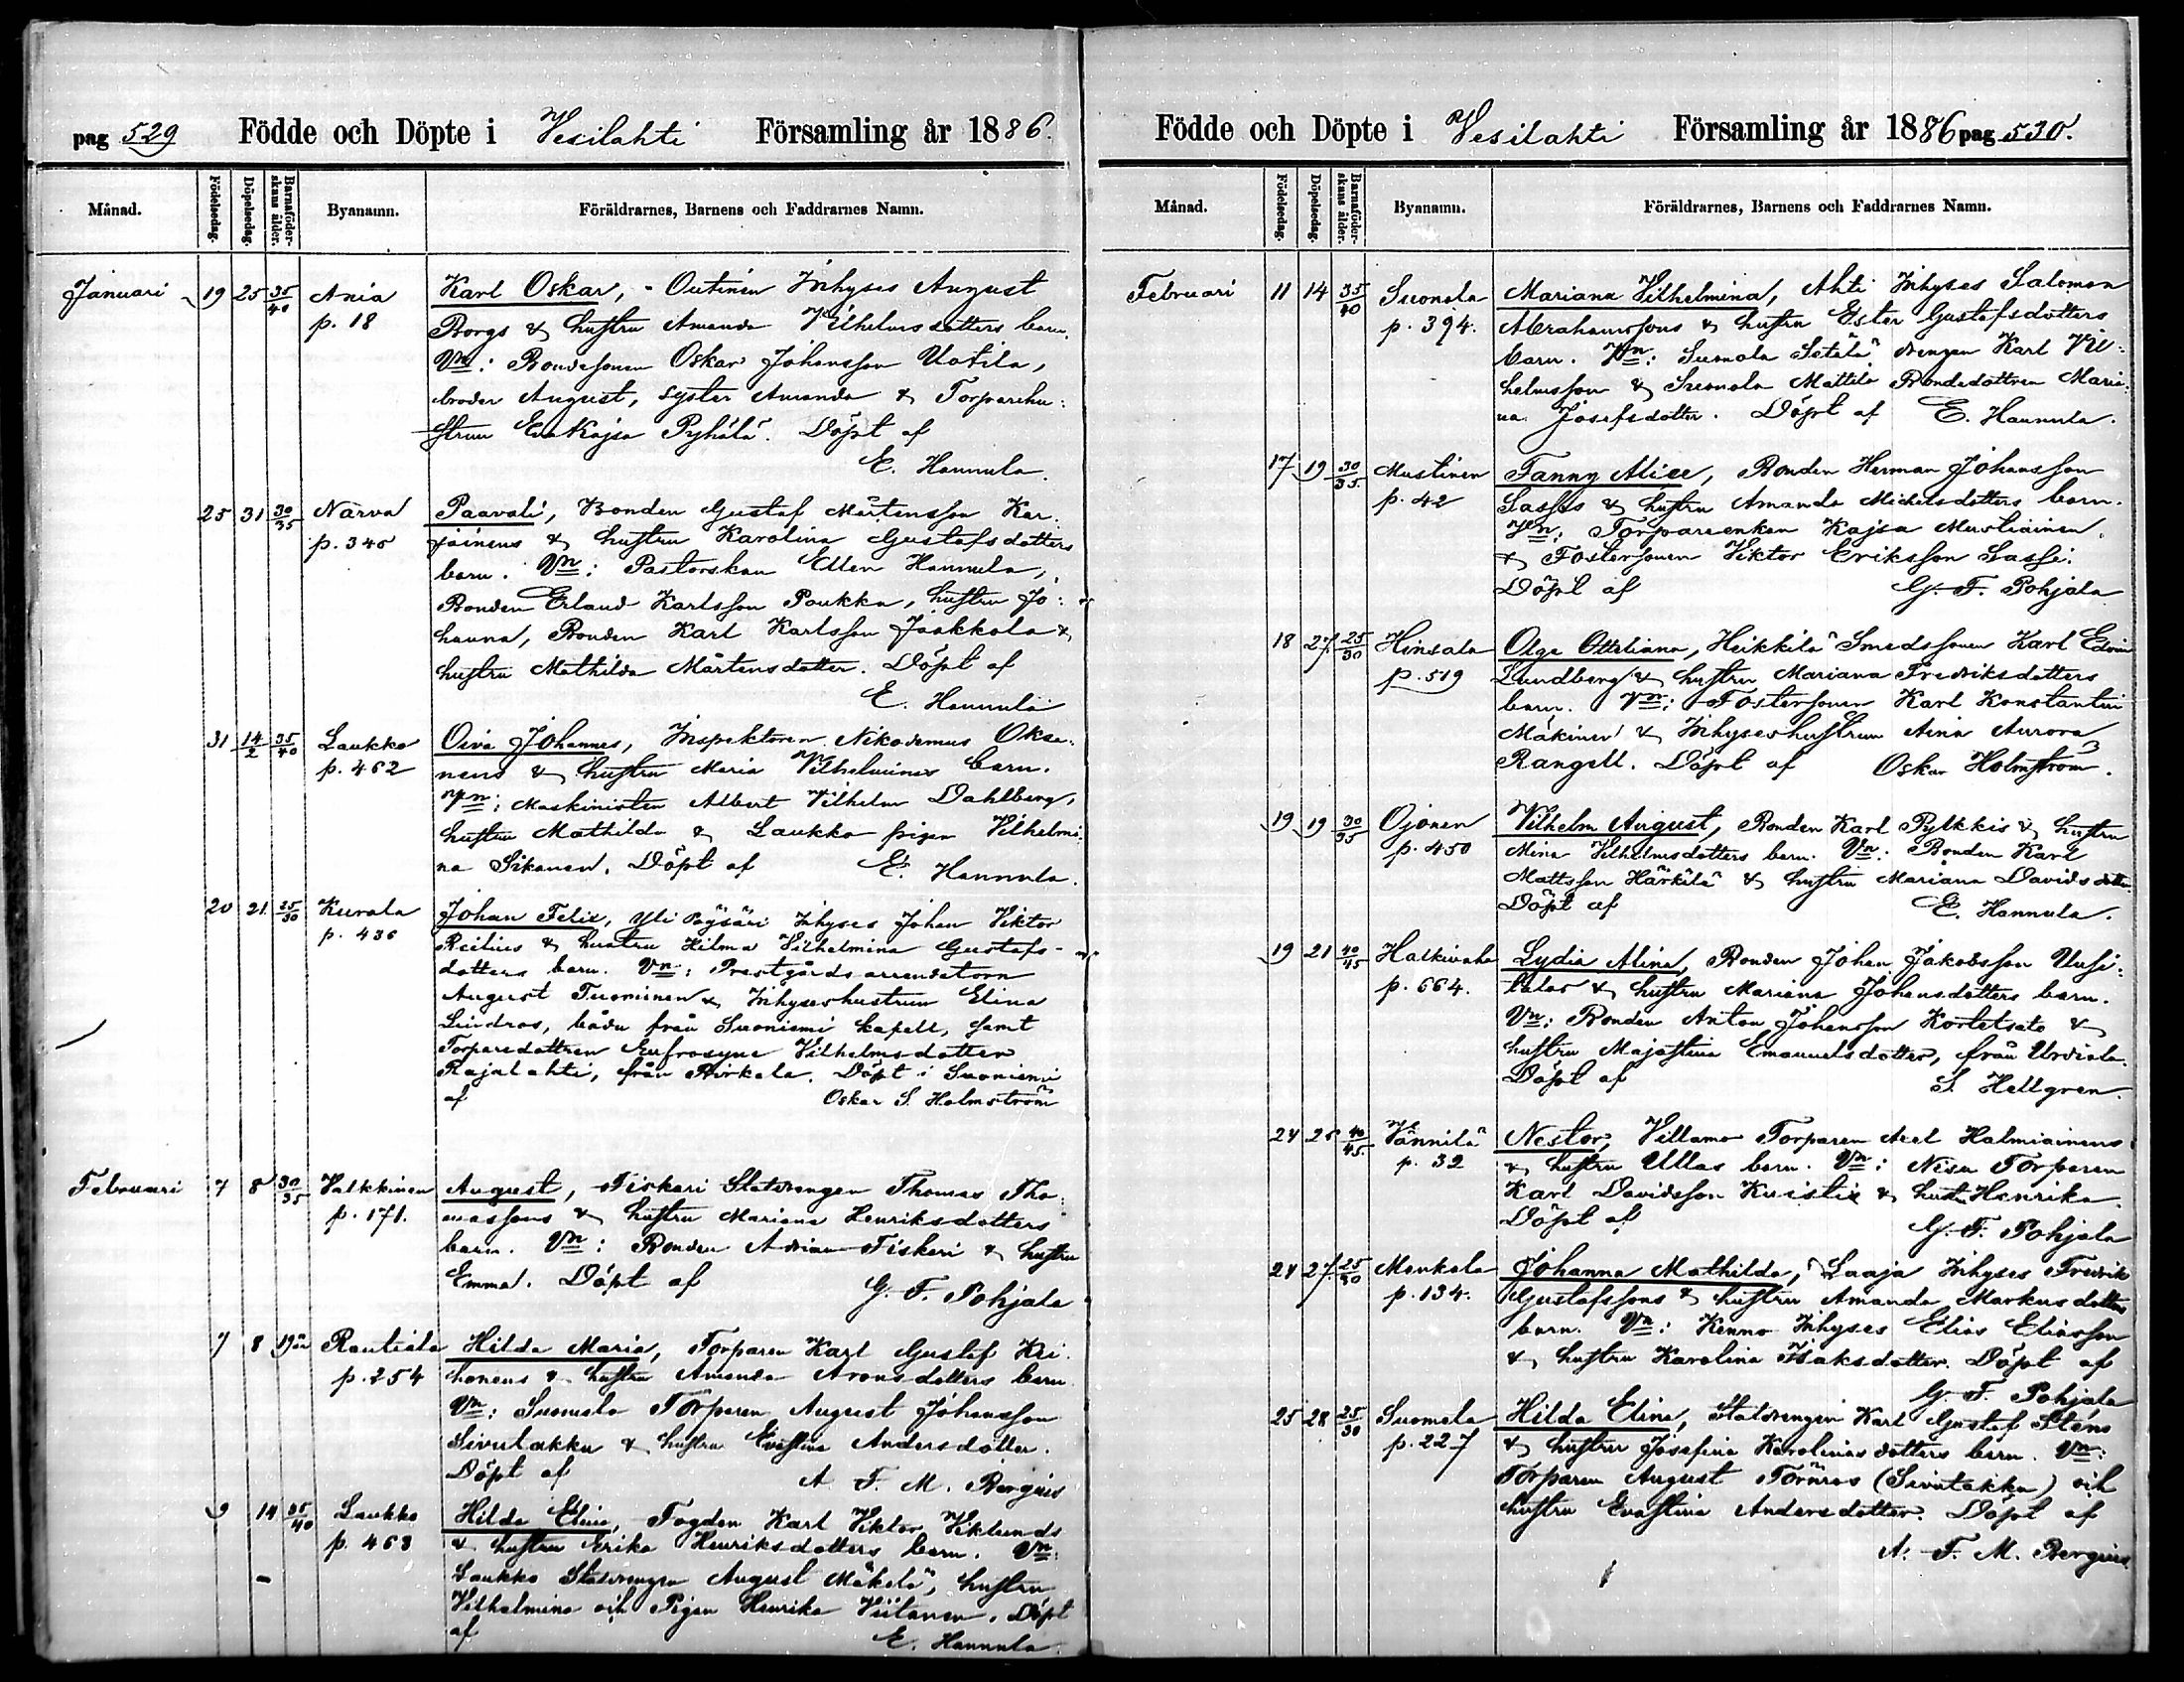 pag 529 Födde och Döpte i Vesilahti Församling år 1886.
Månad. Födelsedag. Döpelsedag. Barnaföderskans ålder. Byanamn. Föräldrarnes, Barnens och Faddrarnes Namn.
Januari 19 25 35/40 Ania Karl Oskar, - Outinen Inhyses August
p. 18 Borgs & hustru Amanda Vilhelmsdotters barn.
Vn: Bondesonen Oskar Johansson Uotila,
broder August, syster Amanda & Torparehu:
strun Eva Kajsa Pyhälä. Döpt af
E. Hannula.
25 31 30/35 Närvä Paavali, Bonden Gustaf Mårtensson Kar:
p. 345 jäinens & hustru Karolina Gustafsdotters
barn. Vn: Pastorskan Ellen Hannula,
Bonden Erland Karlsson Poukka, hustru Jo:
hanna, Bonden Karl Karlsson Jaakkola &
hustru Mathilda Mårtensdotter. Döpt af
E. Hannula
31 14/2 35/40 Laukko Oiva Johannes, Inspektoren Nikodemus Oksa:
p. 462 nens & hustru Maria Vilhelminas barn.
Vn: Maskinisten Albert Vilhelm Dahlberg,
hustru Mathilda & Laukko pigan Vilhelmi:
na Sikanen. Döpt af E. Hannula.
20 21 25/30 Kurala Johan Felix, Yli Päysäri Inhyses Johan Viktor
p. 436 Reilius & hustru Hilma Vilhelmina Gustafs-
dotters barn. Vn: Prestgårdsarrendatorn
August Tuominen & Inhyseshustrun Elina
Lindroos, både från Suoniemi kapell, samt
Torparedottren Eufrosyne Vilhelmsdotter
Rajalahti, från Birkala. Döpt i Suoniemi
af Oskar S. Holmström
Februari 7 8 30/35 Valkkinen August, Fiskari Statdrengen Thomas Tho:
p. 171. massons & hustru Mariana Henriksdotters
barn. Vn: Bonden Adrian Fiskari & hustru
Emma. Döpt af G. F. Pohjala
7 8 19 år Rautiala Hilda Maria, Torparen Karl Gustaf Kei:
p. 254 honens & hustru Amanda Aronsdotters barn
Vn: Suomela Torparen August Johansson
Sivulakka & hustru Evastina Andersdotter.
Döpt af A. F. M. Bergius
9 14 35/40 Laukko Hilda Elina, Fogden Karl Viktor Viklunds
p. 463 & hustru Erika Henriksdotters barn. Vn:
Laukko Statdrengen August Mäkelä, hustru
Vilhelmina och Pigan Henrika Viitanen. Döpt
af E. Hannula.
Födde och Döpte i Vesilahti Församling år 1886 pag 530.
Månad. Födelsedag. Döpelsedag. Barnaföderskans ålder. Byanamn. Föräldrarnes, Barnens och Faddrarnes Namn.
Februari 11 14 35/40 Suonola Mariana Vilhelmina, Ahti Inhyses Salomon
p. 394. Abrahamssons & hustru Ester Gustafsdotters
barn. Vn: Suonola Setälä drengen Karl Vil:
helmsson & Suonola Mattila Bondedottren Maria:
na Josefsdotter. Döpt af E. Hannula.
17 19 30/35 Mustinen Fanny Alice, Bonden Herman Johansson
p. 42 Sassis & hustru Amanda Michelsdotters barn.
Vn: Torpareenkan Kajsa Mustiainen
& Fostersonen Viktor Eriksson Sassi.
Döpt af G. F. Pohjala
18 27 25/30 Hinsala Olga Otteliana, Heikkilä Smedssonen Karl Edvin
p. 519 Lundberg & hustru Mariana Fredriksdotters
barn. Vn: Fostersonen Karl Konstantin
Mäkinen & Inhyseshustrun Aina Aurora
Rangell. Döpt af Oskar Holmström.
19 19 30/35 Ojonen Vilhelm August, Bonden Karl Pylkkis & hustru
p. 450 Mina Vilhelmsdotters barn. Vn: Bonden Karl
Mattsson Härkälä & hustru Mariana Davidsdotter.
Döpt af E. Hannula.
19 21 40/45 Halkivaha Lydia Alina, Bonden Johan Jakobsson Uusi:
p. 664. talos & hustru Mariana Johansdotters barn.
Vn: Bonden Anton Johansson Kortetsato &
hustru Majastina Emanuelsdotter, från Urdiala.
Döpt af S. Hellgren.
24 25 40/45 Vännilä Nestor, Villamo Torparen Axel Halmiainens
p. 32 & hustru Ullas barn. Vn: Nisu Torparen
Karl Davidsson Knistix & hust. Henrika.
Döpt af G. F. Pohjala
24 27 25/30 Mankala Johanna Mathilda, Laaja Inhyses Fredrik
p. 134. Gustafssons & hustru Amanda Markusdotters
barn. Vn: Kenno Inhyses Elias Eliasson
& hustru Karolina Isaksdotter. Döpt af
G. F. Pohjala
25 28 25/30 Suomela Hilda Elina, Statdrengen Karl Gustaf Stens
p. 227 & hustru Josefina Karolinasdotters barn. Vn:
Torparen August Törnros (Sivulakka) och
hustru Evastina Andersdotter. Döpt af
A. F. M. Bergius